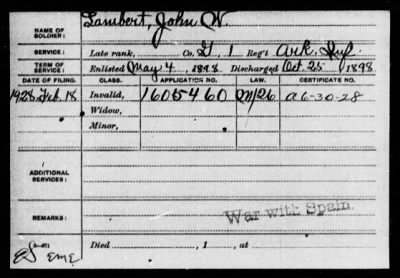 NAME OF SOLDIER: Lambert, John W.
SERVICE: Late rank, Co. G, 1 Reg't Ark. Inf.
TERM OF SERVICE: Enlisted May 4, 1898 Discharged Oct. 25 1898
DATE OF FILING. CLASS. APPLICATION NO. LAW. CERTIFICATE NO.
1928 Feb. 18 Invalid, 1605460 a 6-30-28
Widow,
Minor,
ADDITIONAL SERVICES:
REMARKS: War with Spain.
EME Died , 1 , at